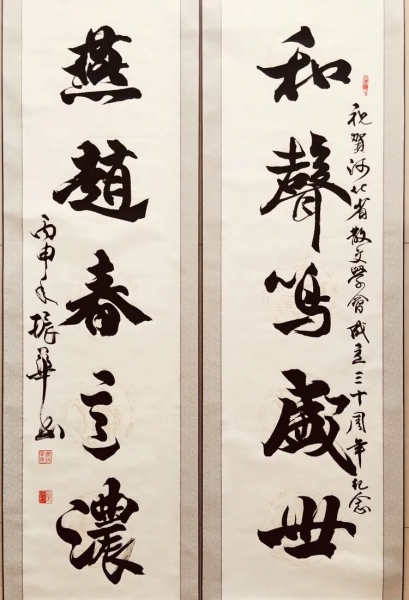 和聲鳴盛世
祝賀河北省散文學會成立三十周年紀念
燕趙春意濃
丙申年振華書